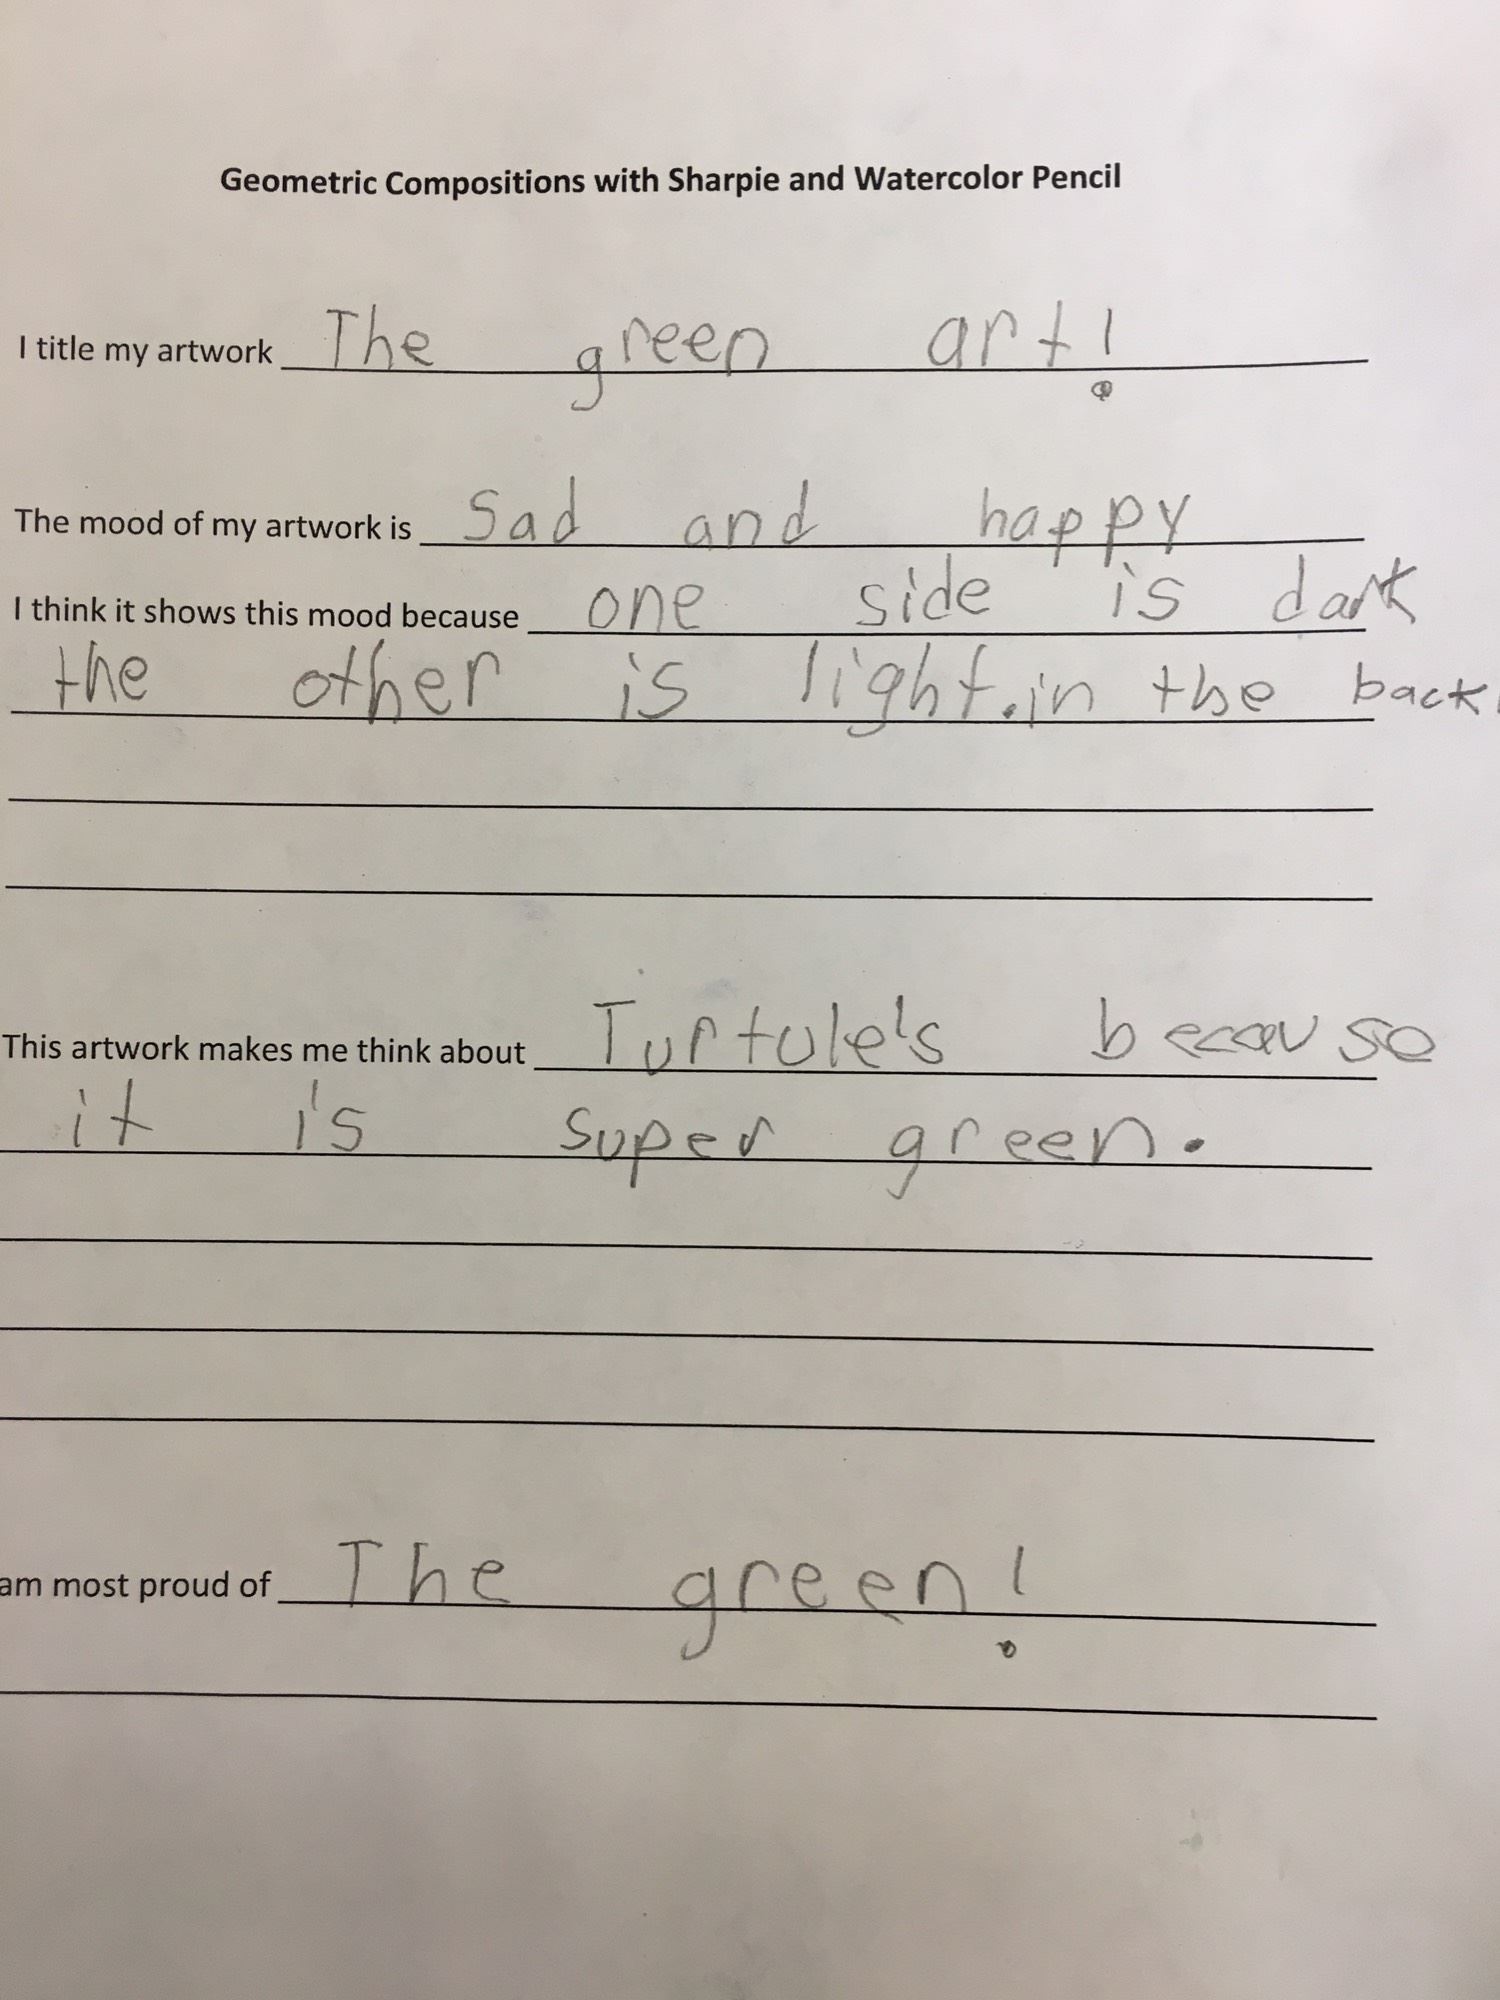 Geometric Compositions with Sharpie and Watercolor Pencil
I title my artwork The green art!
The mood of my artwork is Sad and happy
I think it shows this mood because one side is dark
the other is light.in the back
This artwork makes me think about Turtule's because
it is super green.
am most proud of The green!